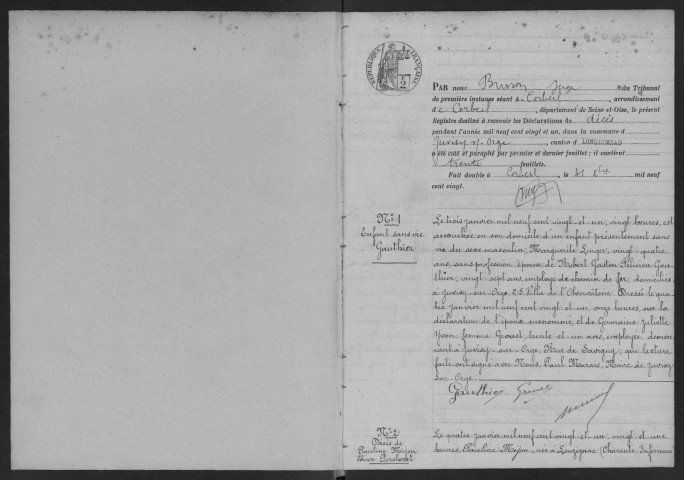 RÉPUBLIQUE FRANÇAISE
2
PAR nous Buisson Juge du Tribunal
de première instance séant à Corbeil, arrondissement
de Corbeil, département de Seine-et-Oise, le présent
Registre destiné à recevoir les Déclarations de décès
pendant l'année mil neuf cent vingt et un, dans la commune d
Juvisy s/ Orge, canton d LONGJUMEAU
a été coté et paraphé par premier et dernier feuillet; il contient
trente feuillets.
Fait double à Corbeil, le 31 Xbre mil neuf
cent vingt.
N° 1
Enfant sans vie
Gauthier
Le trois janvier mil neuf cent vingt et un, vingt heures, est
accouchée en son domicile d'un enfant présentement sans
vie du sexe masculin, Marguerite Linger, vingt quatre
ans, sans profession, épouse de Robert Gaston Gau-
thier, vingt sept ans, employé de chemin de fer, domiciliés
à Juvisy-sur-Orge, 25 Villa de l'Observatoire. Dressé le qua-
tre janvier mil neuf cent vingt et un, onze heures, sur la
déclaration de l'époux susnommé, et de Germaine Juliette
Yvon, femme Grouet, trente et un ans, employée, demeu-
rant à Juvisy-sur-Orge, Rue de Savigny; qui, lecture
faite ont signé avec Nous, Paul Maire de Juvisy
sur Orge.
Gauthier
N° 2
Décès de
Pauline Mejon
Veuve
Le quatre janvier mil neuf cent vingt et un, vingt et une
heures, Pauline Mejon, née à Louzignac (Charente Inférieure